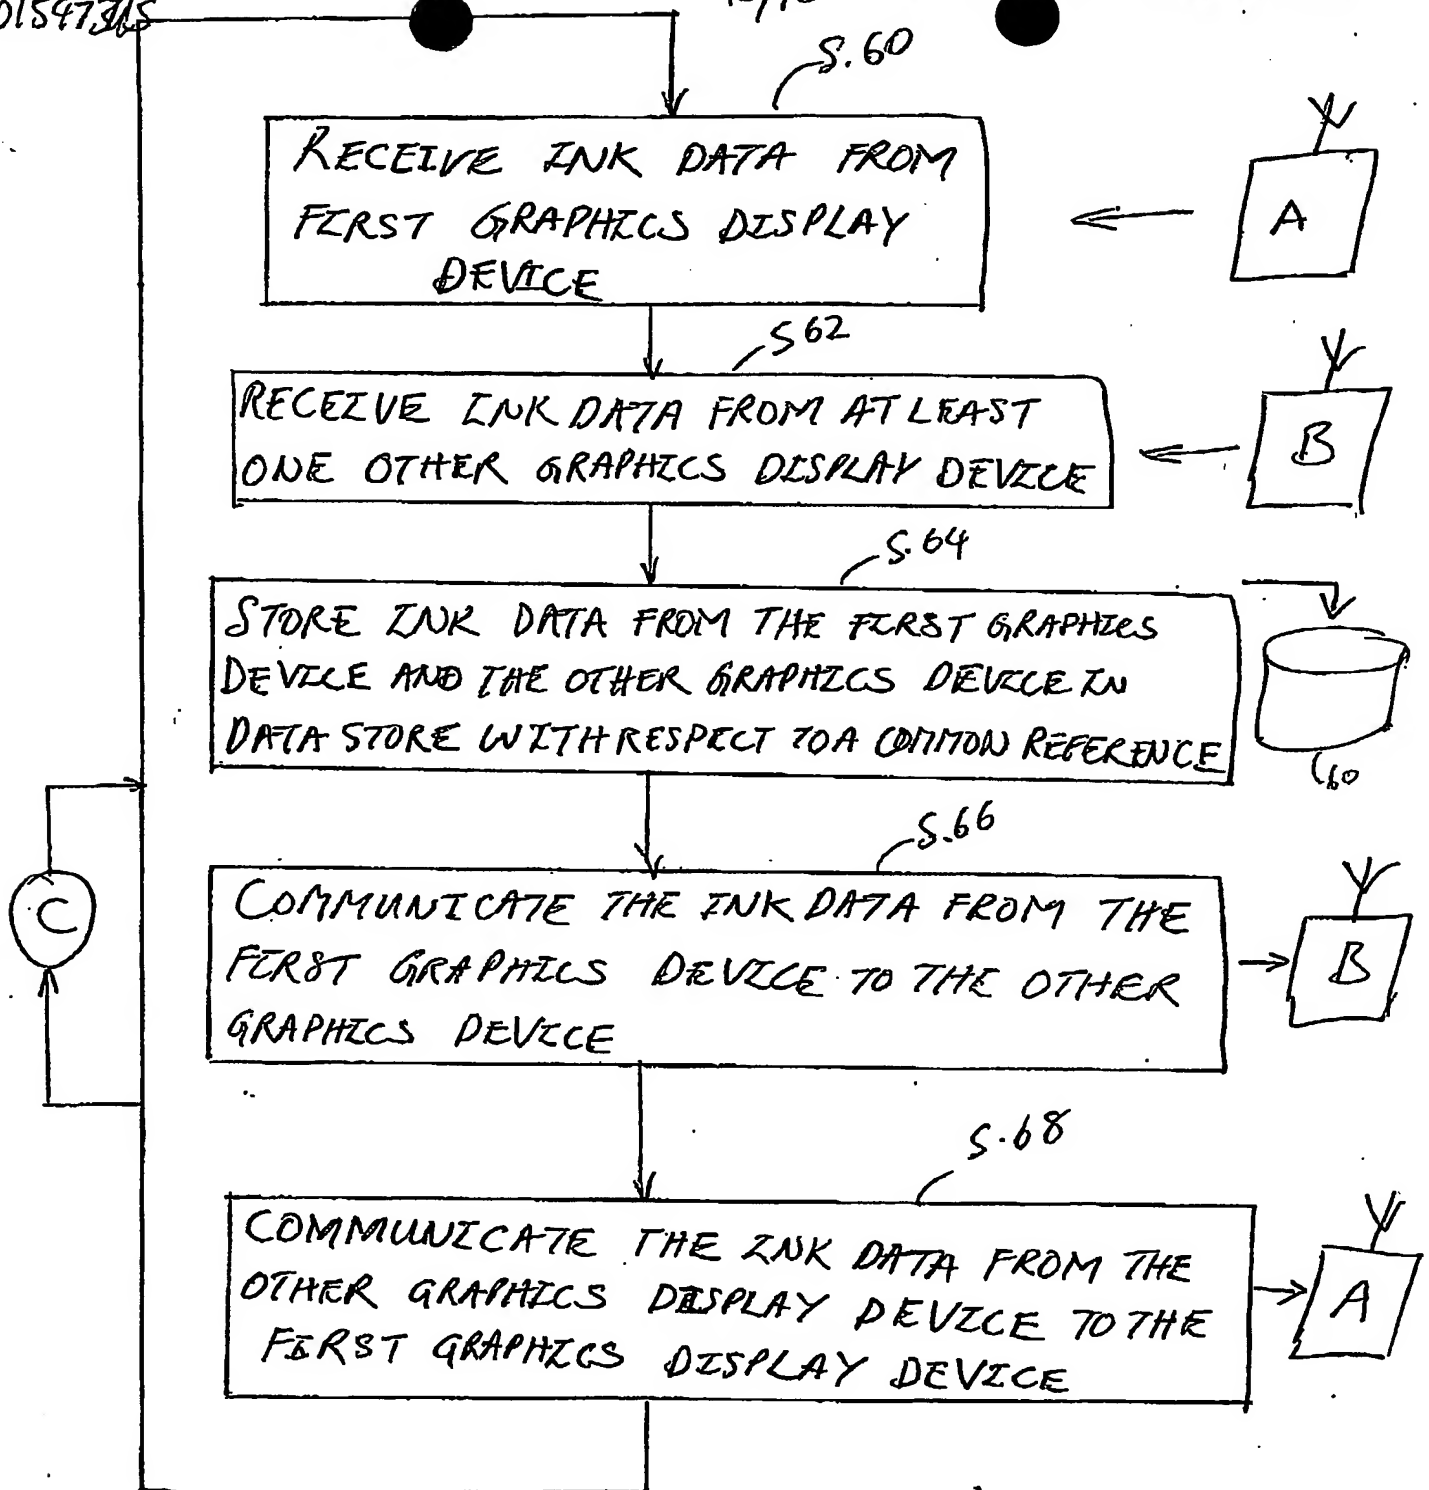 S.60
RECEIVE INK DATA FROM
FIRST GRAPHICS DISPLAY
DEVICE
A
S62
RECEIVE INK DATA FROM AT LEAST
ONE OTHER GRAPHICS DISPLAY DEVICE
B
S.64
STORE INK DATA FROM THE FIRST GRAPHICS
DEVICE AND THE OTHER GRAPHICS DEVICE IN
DATA STORE WITH RESPECT TO A COMMON REFERENCE
60
S.66
C
COMMUNICATE THE INK DATA FROM THE
FIRST GRAPHICS DEVICE TO THE OTHER
GRAPHICS DEVICE
B
S.68
COMMUNICATE THE INK DATA FROM THE
OTHER GRAPHICS DISPLAY DEVICE TO THE
FIRST GRAPHICS DISPLAY DEVICE
A